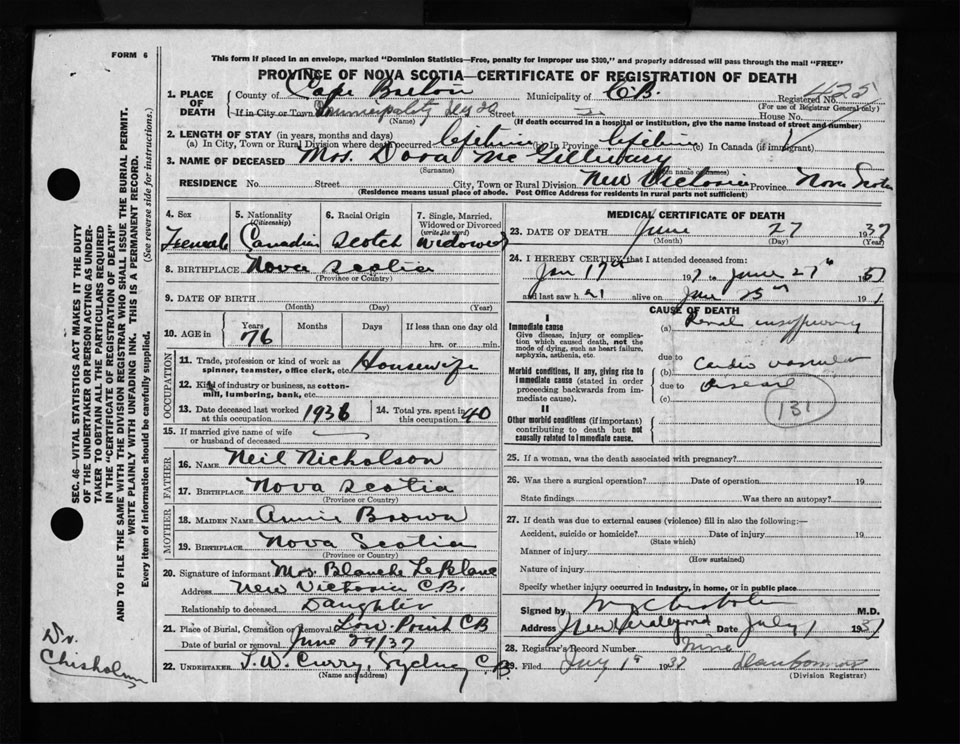 FORM 6
This form if placed in an envelope, marked "Dominion Statistics—Free, penalty for improper use $300," and properly addressed will pass through the mail "FREE"
PROVINCE OF NOVA SCOTIA—CERTIFICATE OF REGISTRATION OF DEATH
1. PLACE OF DEATH
County of Cape Breton Municipality of C.B. Registered No. 425
(For use of Registrar General only)
If in City or Town Municipality Street House No.
(Name) (If death occurred in a hospital or institution, give the name instead of street and number)
2. LENGTH OF STAY (in years, months and days)
(a) In City, Town or Rural Division where death occurred lifetime (b) In Province lifetime (c) In Canada (if immigrant)
3. NAME OF DECEASED Mrs. Dora McGillivary
(Surname)
RESIDENCE No. Street City, Town or Rural Division New Victoria Province Nova Scotia
(Residence means usual place of abode. Post Office Address for residents in rural parts not sufficient)
4. Sex Female
5. Nationality (Citizenship) Canadian
6. Racial Origin Scotch
7. Single, Married, Widowed or Divorced (write the word) Widowed
8. BIRTHPLACE Nova Scotia
(Province or Country)
9. DATE OF BIRTH
(Month) (Day) (Year)
10. AGE in Years Months Days If less than one day old
76 hrs. or min.
OCCUPATION
11. Trade, profession or kind of work as spinner, teamster, office clerk, etc. Housewife
12. Kind of industry or business, as cotton-mill, lumbering, bank, etc.
13. Date deceased last worked at this occupation 1936
14. Total yrs. spent in this occupation 40
15. If married give name of wife or husband of deceased
FATHER
16. NAME Neil Nicholson
17. BIRTHPLACE Nova Scotia
(Province or Country)
MOTHER
18. MAIDEN NAME Annie Brown
19. BIRTHPLACE Nova Scotia
(Province or Country)
20. Signature of informant Mrs. Blanche LeBlanc
Address New Victoria C.B.
Relationship to deceased Daughter
21. Place of Burial, Cremation or Removal Low Point C B
Date of burial or removal June 29/37
22. UNDERTAKER T.W. Curry, Sydney C.B.
(Name and address)
MEDICAL CERTIFICATE OF DEATH
23. DATE OF DEATH June 27 1937
(Month) (Day) (Year)
24. I HEREBY CERTIFY that I attended deceased from:
Jan 17th 193 to June 27th 193
and last saw h alive on June 25th 19
CAUSE OF DEATH
I
Immediate cause
Give disease, injury or complication which caused death, not the mode of dying, such as heart failure, asphyxia, asthenia, etc.
(a) Renal insufficiency
due to
Morbid conditions, if any, giving rise to immediate cause (stated in order proceeding backwards from immediate cause).
(b) Cardio vascular
due to Disease
(c)
131
II
Other morbid conditions (if important) contributing to death but not causally related to immediate cause.
25. If a woman, was the death associated with pregnancy?
26. Was there a surgical operation? Date of operation 19
State findings Was there an autopsy?
27. If death was due to external causes (violence) fill in also the following:—
Accident, suicide or homicide? Date of injury 19
(State which)
Manner of injury
(How sustained)
Nature of injury
Specify whether injury occurred in industry, in home, or in public place
Signed by Chisholm M.D.
Address New Waterford Date July 1 1937
28. Registrar's Record Number Nine
29. Filed July 1st 1937
(Division Registrar)
SEC. 46—VITAL STATISTICS ACT MAKES IT THE DUTY OF THE UNDERTAKER OR PERSON ACTING AS UNDERTAKER TO OBTAIN ALL THE PARTICULARS REQUIRED IN THE "CERTIFICATE OF REGISTRATION OF DEATH"
AND TO FILE THE SAME WITH THE DIVISION REGISTRAR WHO SHALL ISSUE THE BURIAL PERMIT.
WRITE PLAINLY WITH UNFADING INK. THIS IS A PERMANENT RECORD.
Every item of information should be carefully supplied. (See reverse side for instructions.)
Dr. Chisholm